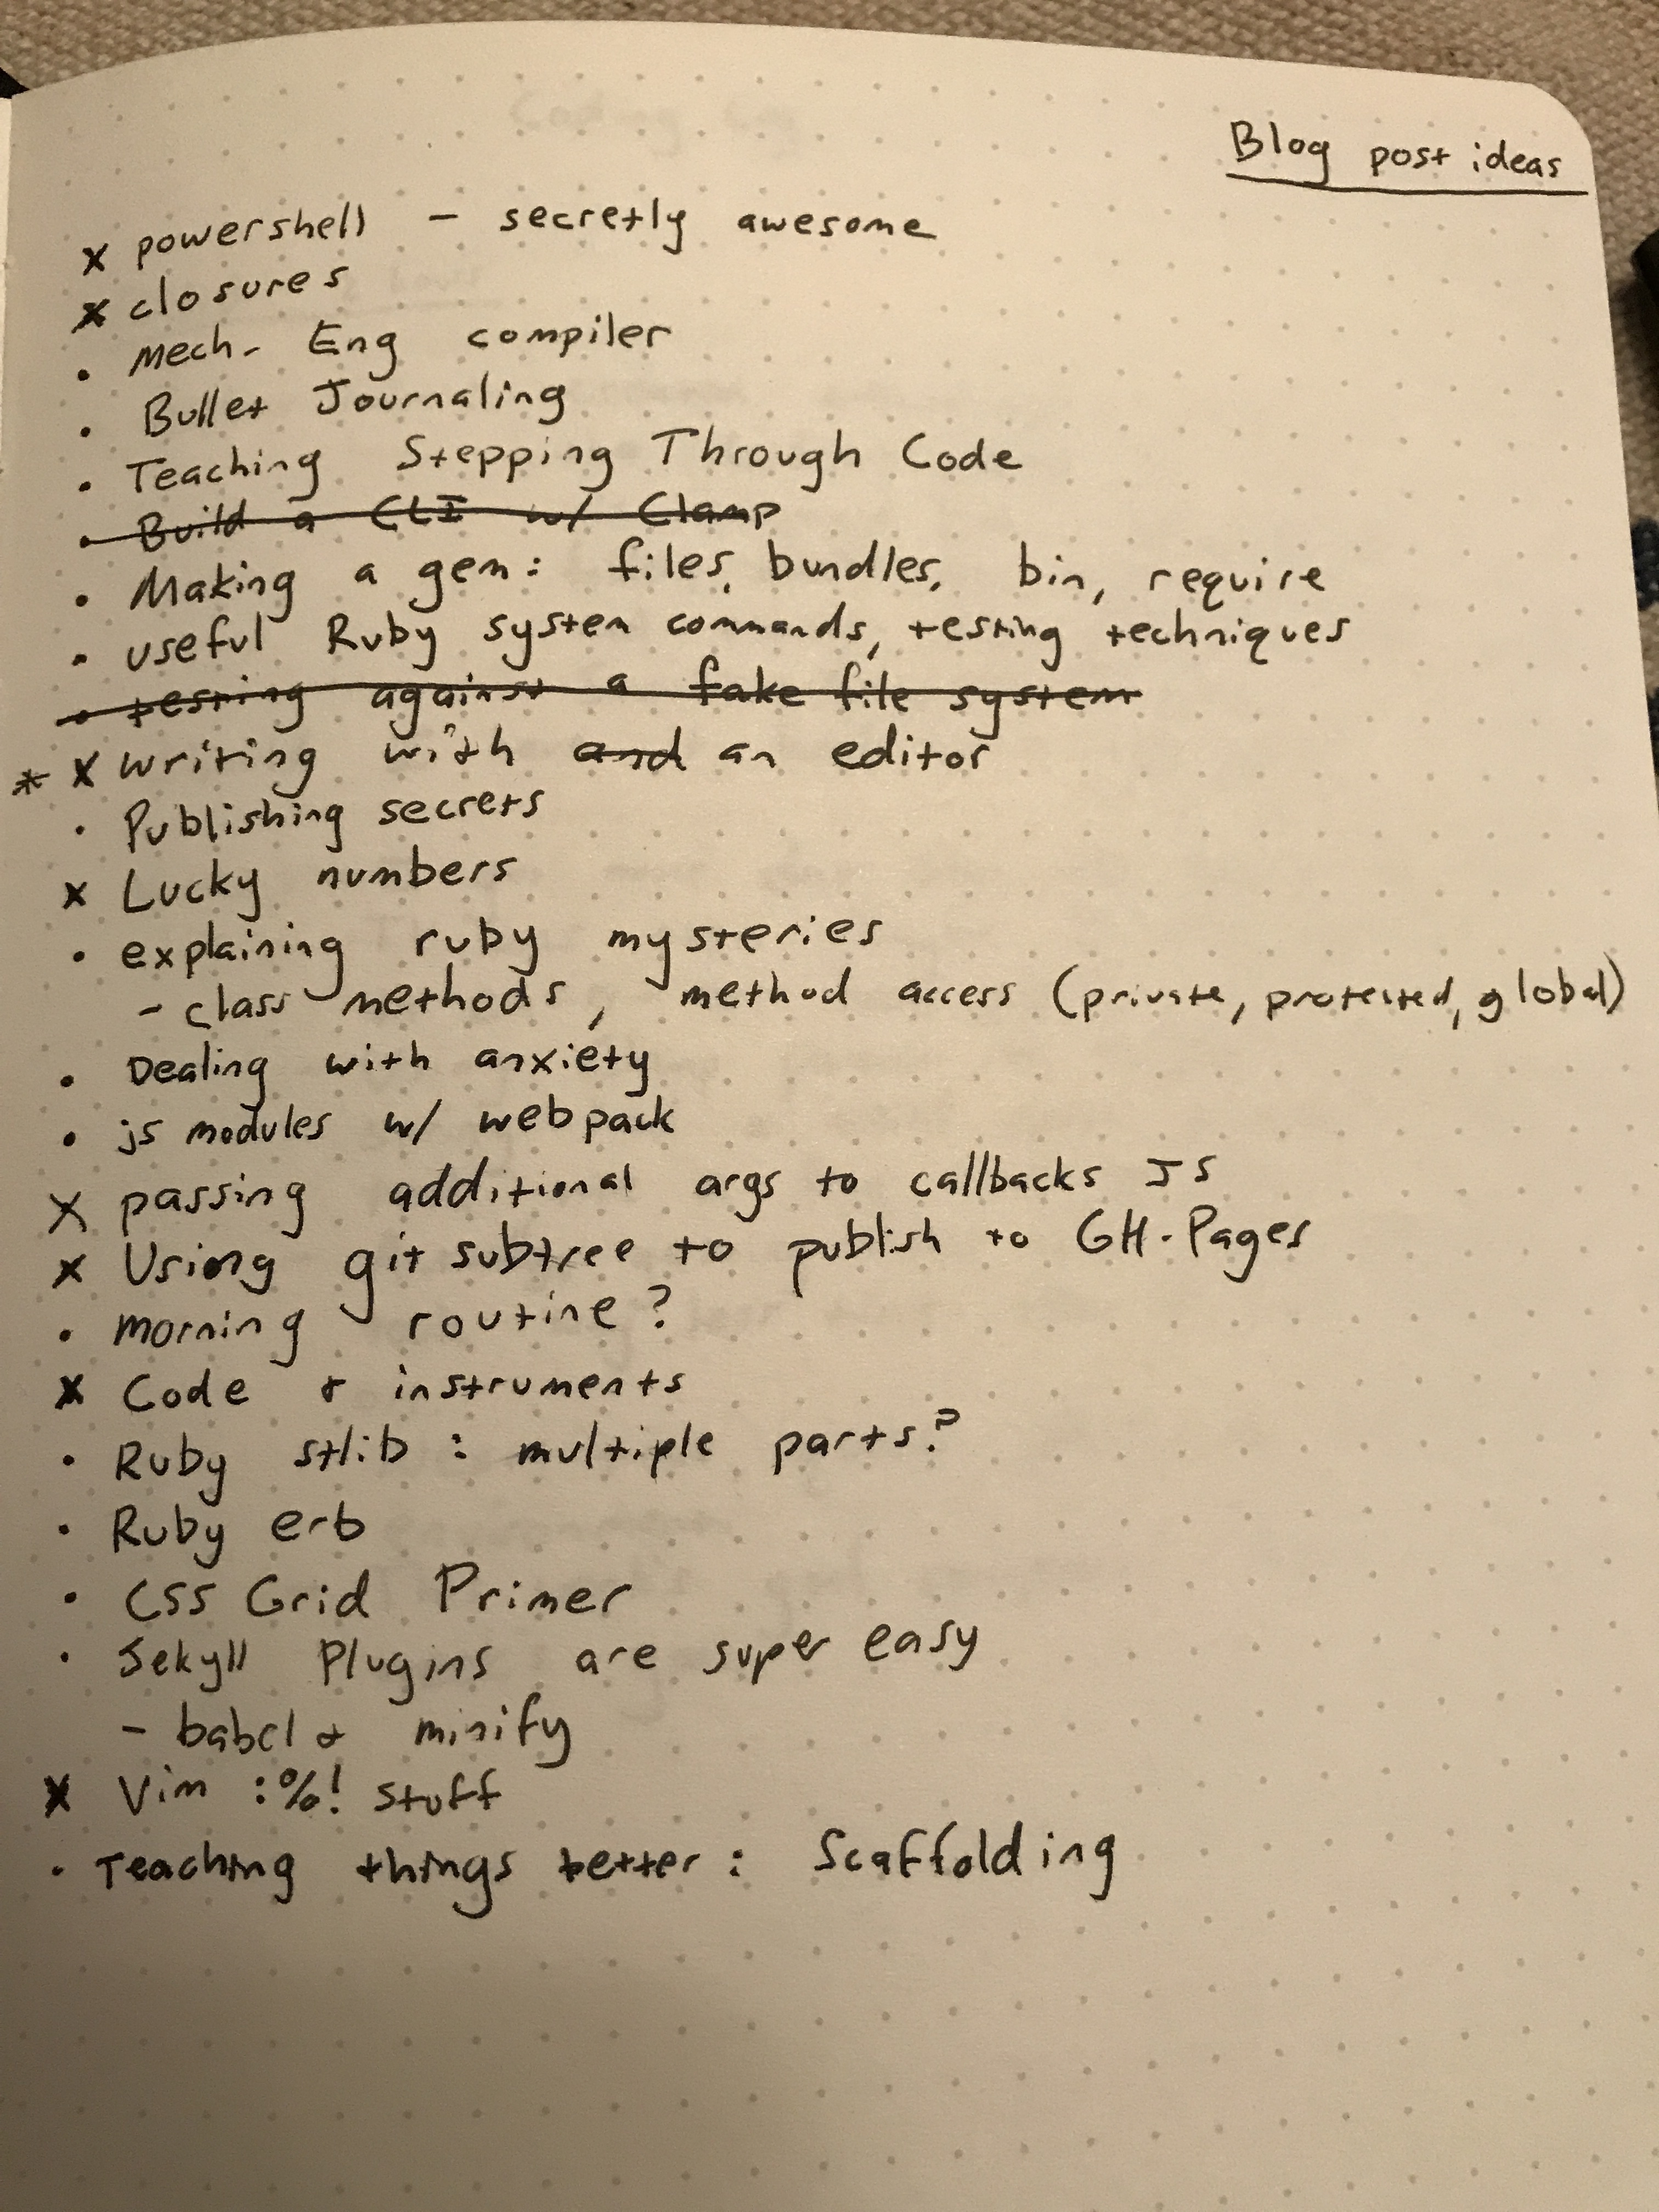 Blog post ideas
x powershell - secretly awesome
x closures
• Mech- Eng compiler
• Bullet Journaling
• Teaching Stepping Through Code
• Build a CLI w/ Clamp
• Making a gem: files, bundles, bin, require
• useful Ruby system commands, testing techniques
• testing against a fake file system
* x writing with and an editor
• Publishing secrets
x Lucky numbers
• explaining ruby mysteries
- class methods, method access (private, protected, global)
• Dealing with anxiety
• js modules w/ webpack
x passing additional args to callbacks JS
x Using git subtree to publish to GH-Pages
• morning routine?
x Code & instruments
• Ruby stlib : multiple parts?
• Ruby erb
• CSS Grid Primer
• Jekyll Plugins are super easy
- babel & minify
x Vim :%! stuff
• Teaching things better: Scaffolding